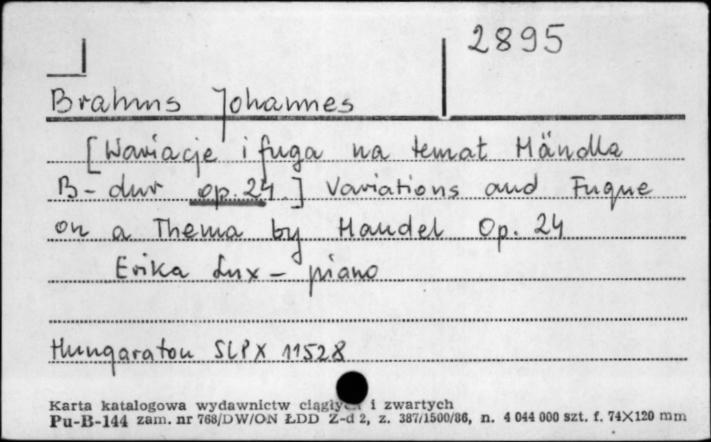 2895
Brahms Johannes
[Wariacje i fuga na temat Händla
B-dur op. 24.] Variations and Fugue
on a Thema by Handel Op. 24
Erika Lux – piano
Hungaroton SLPX 11528
Karta katalogowa wydawnictw ciągłych i zwartych
Pu-B-144 zam. nr 768/DW/ON ŁDD Z-d 2, z. 387/1500/86, n. 4 044 000 szt. f. 74X120 mm